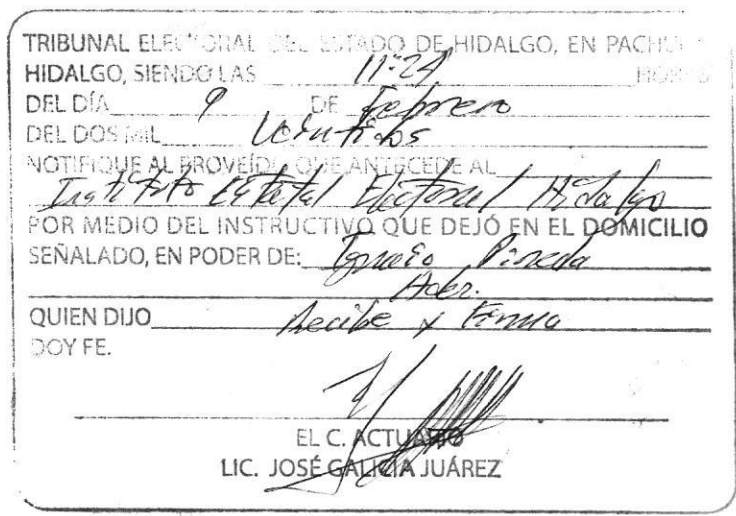 TRIBUNAL ELECTORAL DEL ESTADO DE HIDALGO, EN PACHUCA
HIDALGO, SIENDO LAS 11:24 HORAS
DEL DÍA 9 DE Febrero
DEL DOS MIL Veintidos
NOTIFIQUE AL PROVEÍDO QUE ANTECEDE AL
Instituto Estatal Electoral Hidalgo
POR MEDIO DEL INSTRUCTIVO QUE DEJÓ EN EL DOMICILIO
SEÑALADO, EN PODER DE: Ignacio Pineda
QUIEN DIJO Recibe y Firma
DOY FE.
EL C. ACTUARIO
LIC. JOSÉ GALICIA JUÁREZ